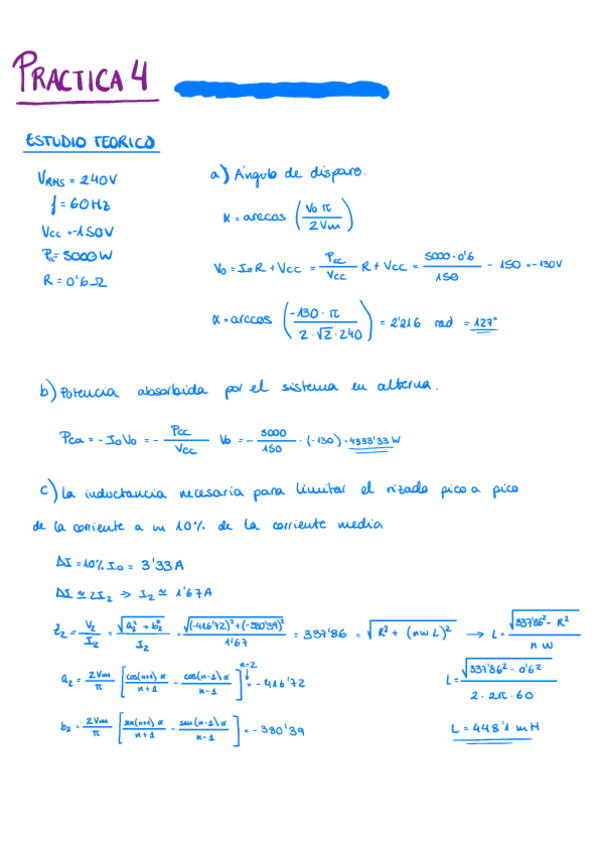 PRACTICA 4
ESTUDIO TEORICO
V_RMS = 240V
f = 60 Hz
Vcc = -150V
Pc = 5000 W
R = 0'6 Ω
a) Ángulo de disparo.
α = arccos (Vo π / 2Vm)
Vo = Io R + Vcc = Pcc/Vcc R + Vcc = 5000·0'6/150 - 150 = -130V
α = arccos (-130·π / 2·√2·240) = 2'216 rad = 127°
b) Potencia absorbida por el sistema en alterna.
Pca = - Io Vo = - Pcc/Vcc Vo = - 5000/150 · (-130) = 4333'33 W
c) La inductancia necesaria para limitar el rizado pico a pico
de la corriente a un 10% de la corriente media
ΔI = 10% Io = 3'33 A
ΔI ≃ 2I₂ → I₂ ≃ 1'67 A
Z₂ = V₂/I₂ = √(a₂² + b₂²)/I₂ = √((-416'72)² + (-380'39)²)/1'67 = 337'86 = √(R² + (nωL)²) → L = √(337'86² - R²)/nω
a₂ = 2Vm/π [cos(n+1)α/n+1 - cos(n-1)α/n-1] n=2 ↓ = -416'72
L = √(337'86² - 0'6²)/2·2π·60
b₂ = 2Vm/π [sen(n+1)α/n+1 - sen(n-1)α/n-1] = -380'39
L = 448'1 mH